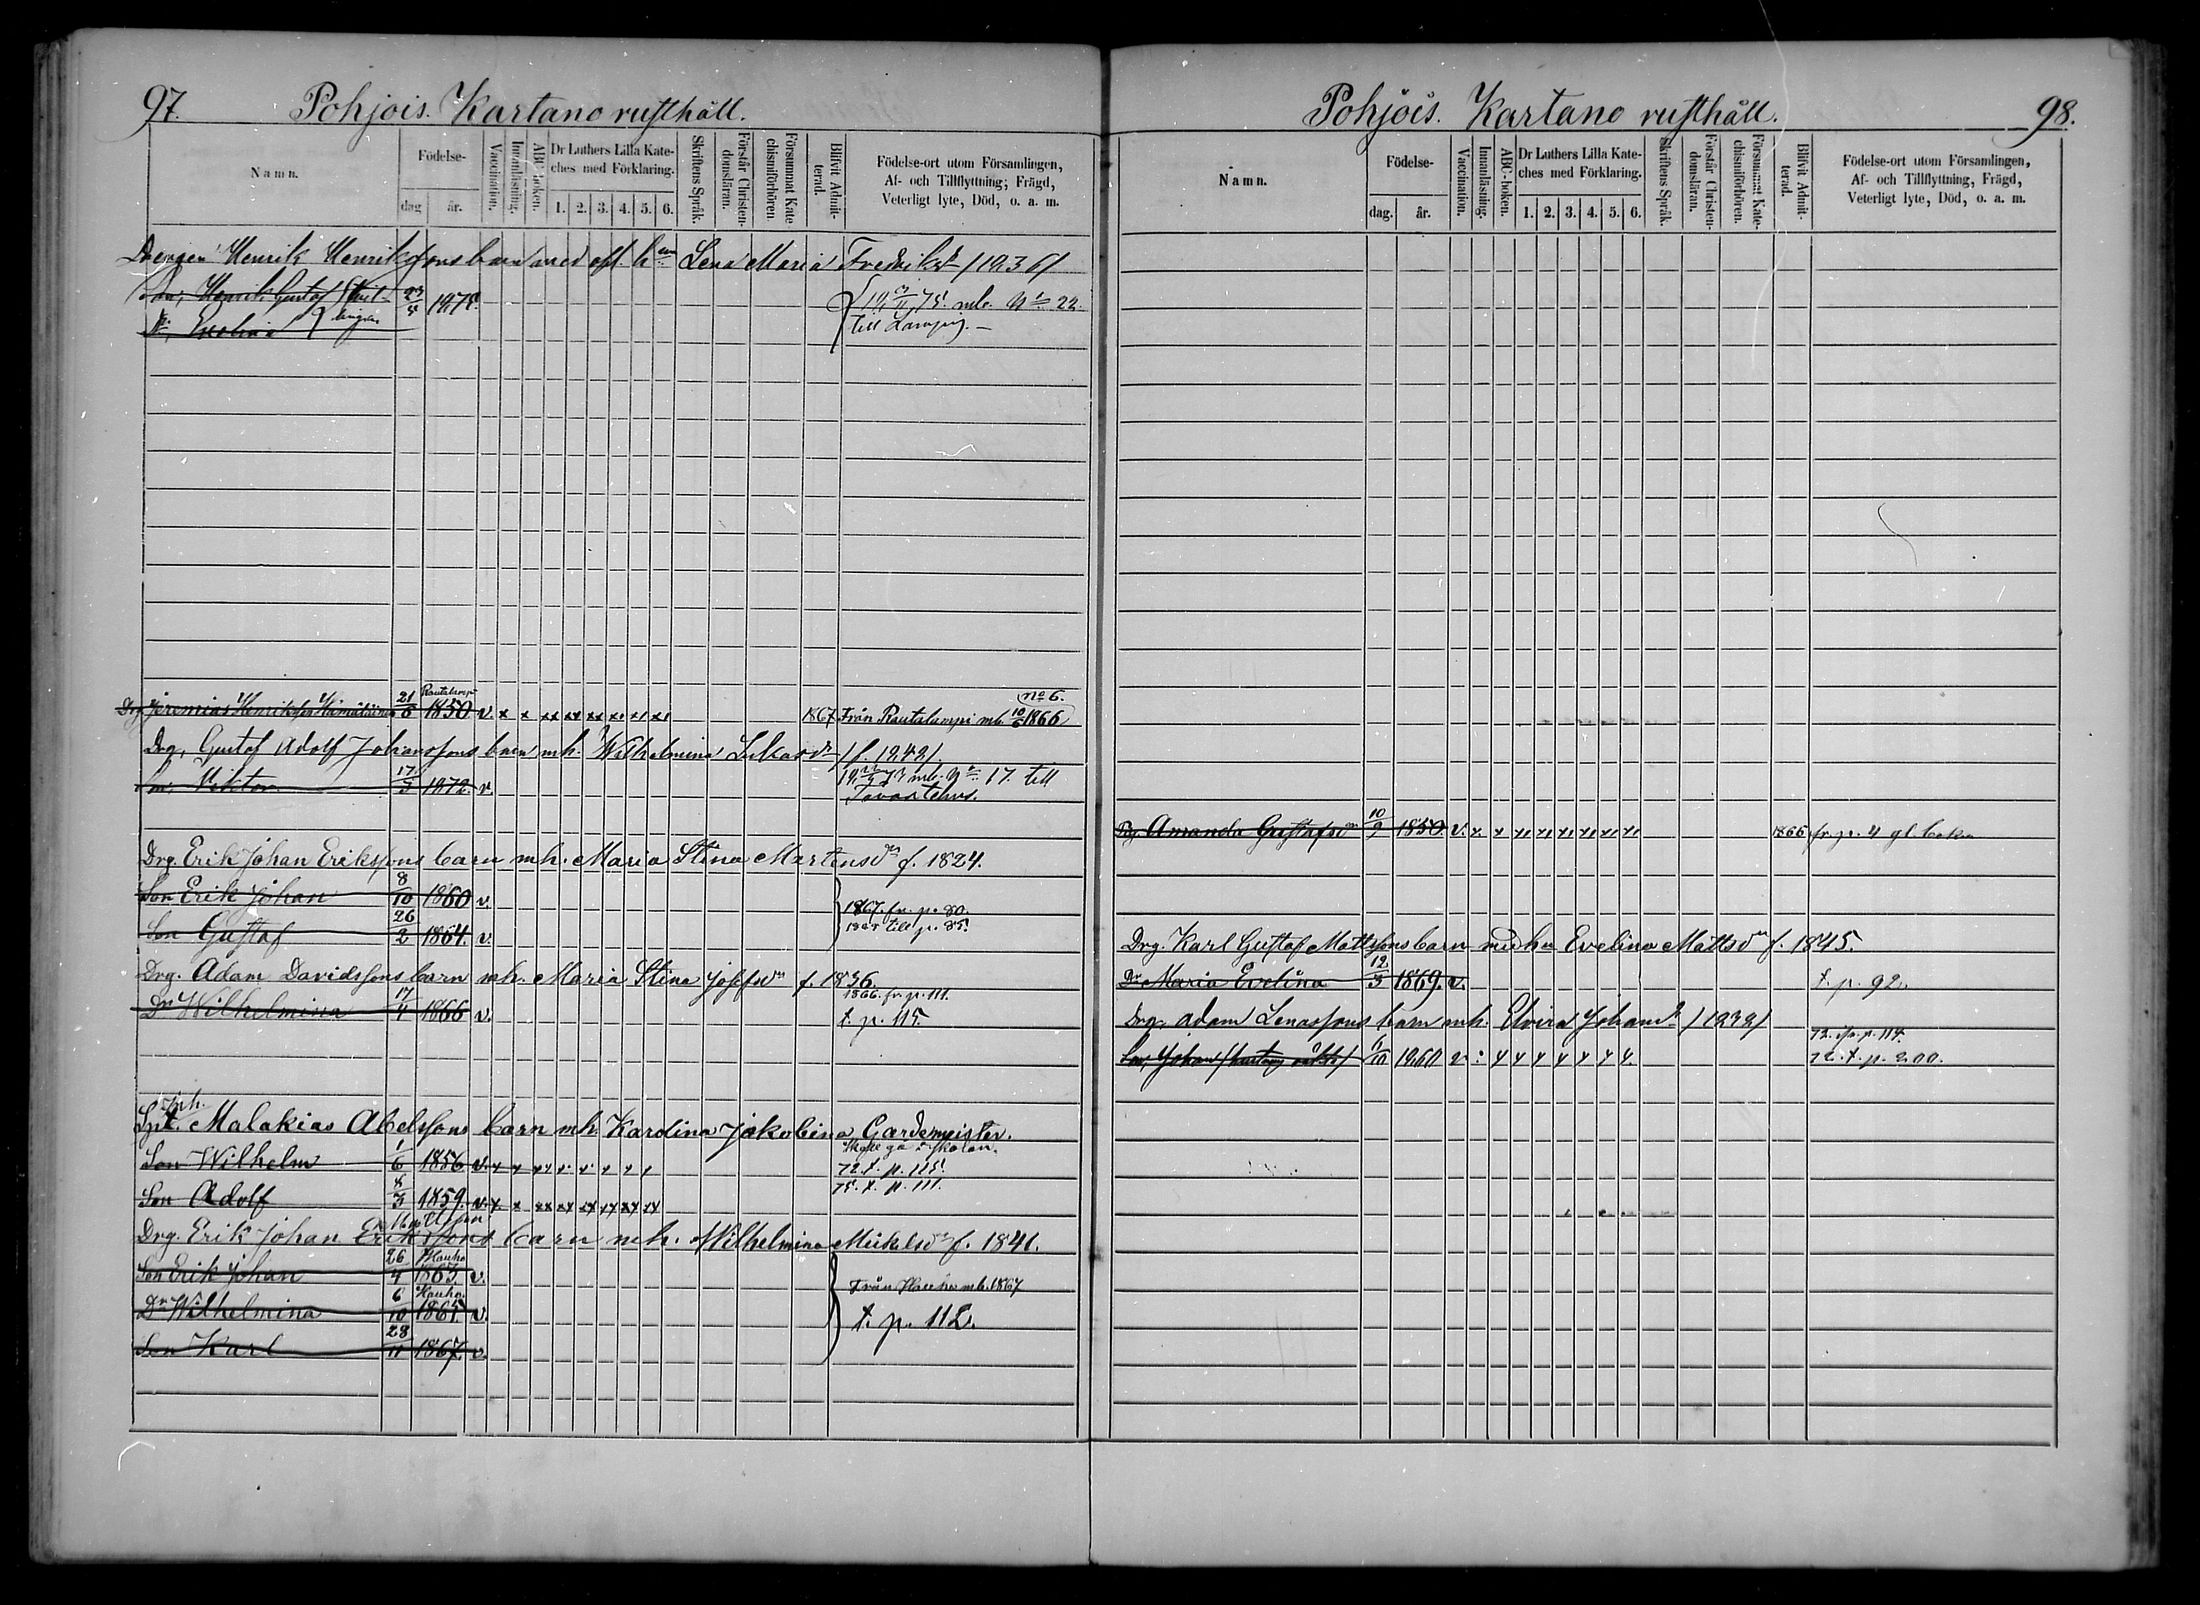 97.
Pohjois. Kartano rusthåll.
Namn.
Födelse-
dag
år.
Vaccination.
Innanläsning.
ABC-boken.
Dr Luthers Lilla Kate-
ches med Förklaring.
1. 2. 3. 4. 5. 6.
Skriftens Språk.
Förstår Christen-
domsläran.
Försummat Kate
chismiförhören
Blifvit Admit-
terad.
Födelse-ort utom Församlingen,
Af- och Tillflyttning; Frägd,
Veterligt lyte, Död, o. a. m.
Drengen Henrik Henrikssons barn med afl. hu Lena Maria Fredriksdr /1836/
Son, Henrik Gustaf
1875.
mb. No 22
till
Drg. Jeremias Henriksson Hämäläinen 21/6 Rautalampi 1850 v. x x xx xx xx xx xx xx 1867 Från Rautalampi mb. 10/6 1866 No 6.
Drg. Gustaf Adolf Johanssons barn mh. Wilhelmina Lukasdr /f. 1842/
Son, Viktor 17/3 1872. v.
mb. No 17. till
Tavastehus.
Drg. Erik Johan Erikssons barn mh. Maria Stina Mårtensdr f. 1824.
Son Erik Johan 8/10 1860 v.
1867. fr. p. 80.
Son Gustaf 26/2 1864. v.
till p. 85.
Drg. Adam Davidssons barn mh. Maria Stina Josefsdr f. 1836.
1866. fr. p. 111.
Dr Wilhelmina 17/4 1866 v. t. p. 115.
Inh.
Malakias Abelssons barn mh. Karolina Jakobina Gärdemeister.
Skall gå i skolan.
Son Wilhelm 1/6 1856 v. 72 t. p. 115.
Son Adolf 8/3 1859. v. 75. t. p. 111.
Drg. Erik Johan Erikssons barn mh. Wilhelmina Mickelsdr f. 1841.
Son Erik Johan 26/4 Hauho 1863. v.
Från Hauho mb. 1867
Dr Wilhelmina 6/10 Hauho. 1865. v.
t. p. 112.
Son Karl 28/11 1867. v.
Pohjois. Kartano rusthåll.
98.
Namn.
Födelse-
dag.
år.
Vaccination.
Innanläsning.
ABC-boken.
Dr Luthers Lilla Kate-
ches med Förklaring.
1. 2. 3. 4. 5. 6.
Skriftens Språk.
Förstår Christen-
domsläran.
Försummat Kate-
chismiförhören.
Blifvit Admit-
terad.
Födelse-ort utom Församlingen,
Af- och Tillflyttning, Frägd,
Veterligt lyte, Död, o. a. m.
Pg. Amanda Gustafsdr 10/9 1850. v. x x x x x x x x 1866 fr. p. 4 gl. boken
Drg. Karl Gustaf Mattssons barn med hu Evelina Mattsdr f. 1845.
Dr Maria Evelina 12/3 1869. v. t. p. 92.
Drg. Adam Lenassons barn mh. Elvira Johansdr /1838/
72. fr. p. 114.
Son, Johan 6/10 1860 v
72. t. p. 200.